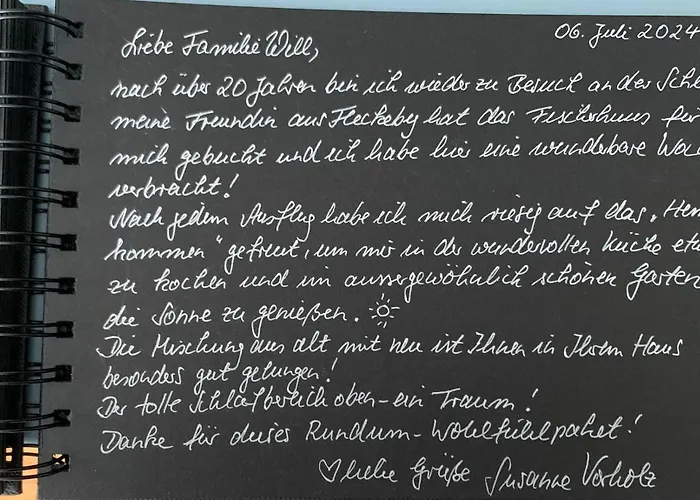 06. Juli 2024
Liebe Familie Will,
nach über 20 Jahren bin ich wieder zu Besuch an der Schl
meine Freundin aus Fleckeby hat das Fischerhaus für
mich gebucht und ich habe hier eine wunderbare Woc
verbracht!
Nach jedem Ausflug habe ich mich riesig auf das „Heim
kommen" gefreut, um mir in der wundervollen Küche etw
zu kochen und im aussergewöhnlich schönen Garten
die Sonne zu genießen.
Die Mischung aus alt mit neu ist Ihnen in Ihrem Haus
besonders gut gelungen!
Der tolle Schlafbereich oben - ein Traum!
Danke für dieses Rundum-Wohlfühlpaket!
liebe Grüße Susanne Vorholz